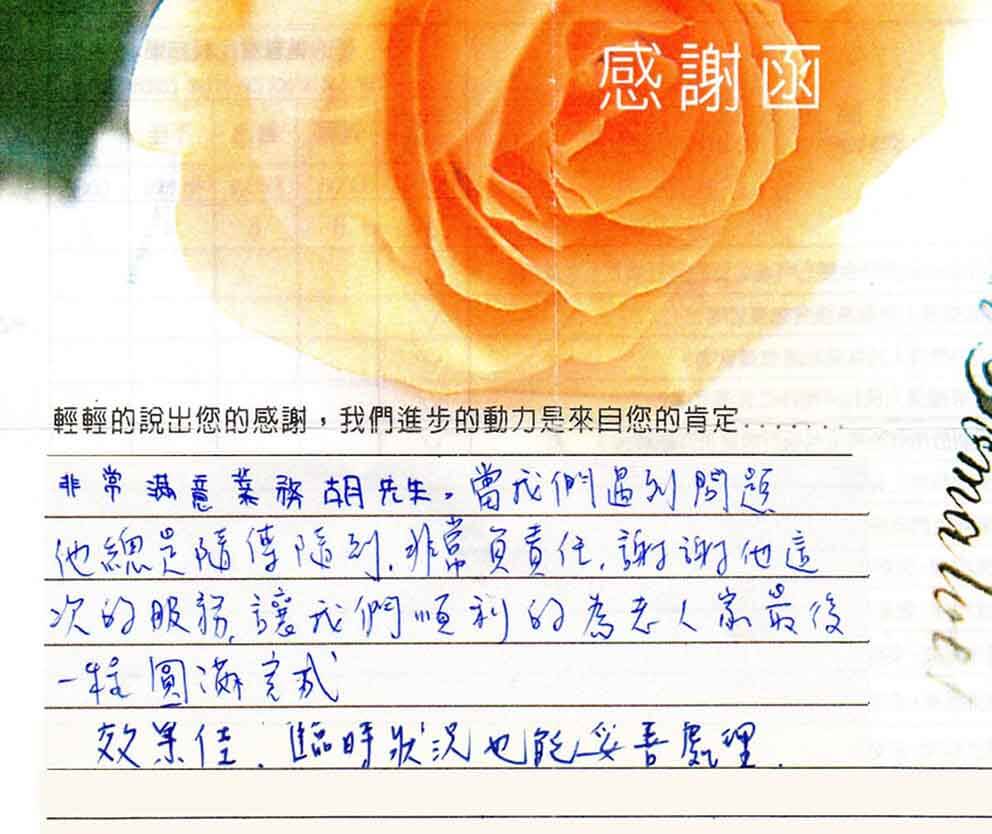 感謝函
輕輕的說出您的感謝，我們進步的動力是來自您的肯定.......
非常滿意業務胡先生。當我們遇到問題
他總是隨傳隨到,非常負責任,謝謝他這
次的服務,讓我們順利的為老人家最後
一程圓滿完成
效果佳.臨時狀況也能妥善處理.